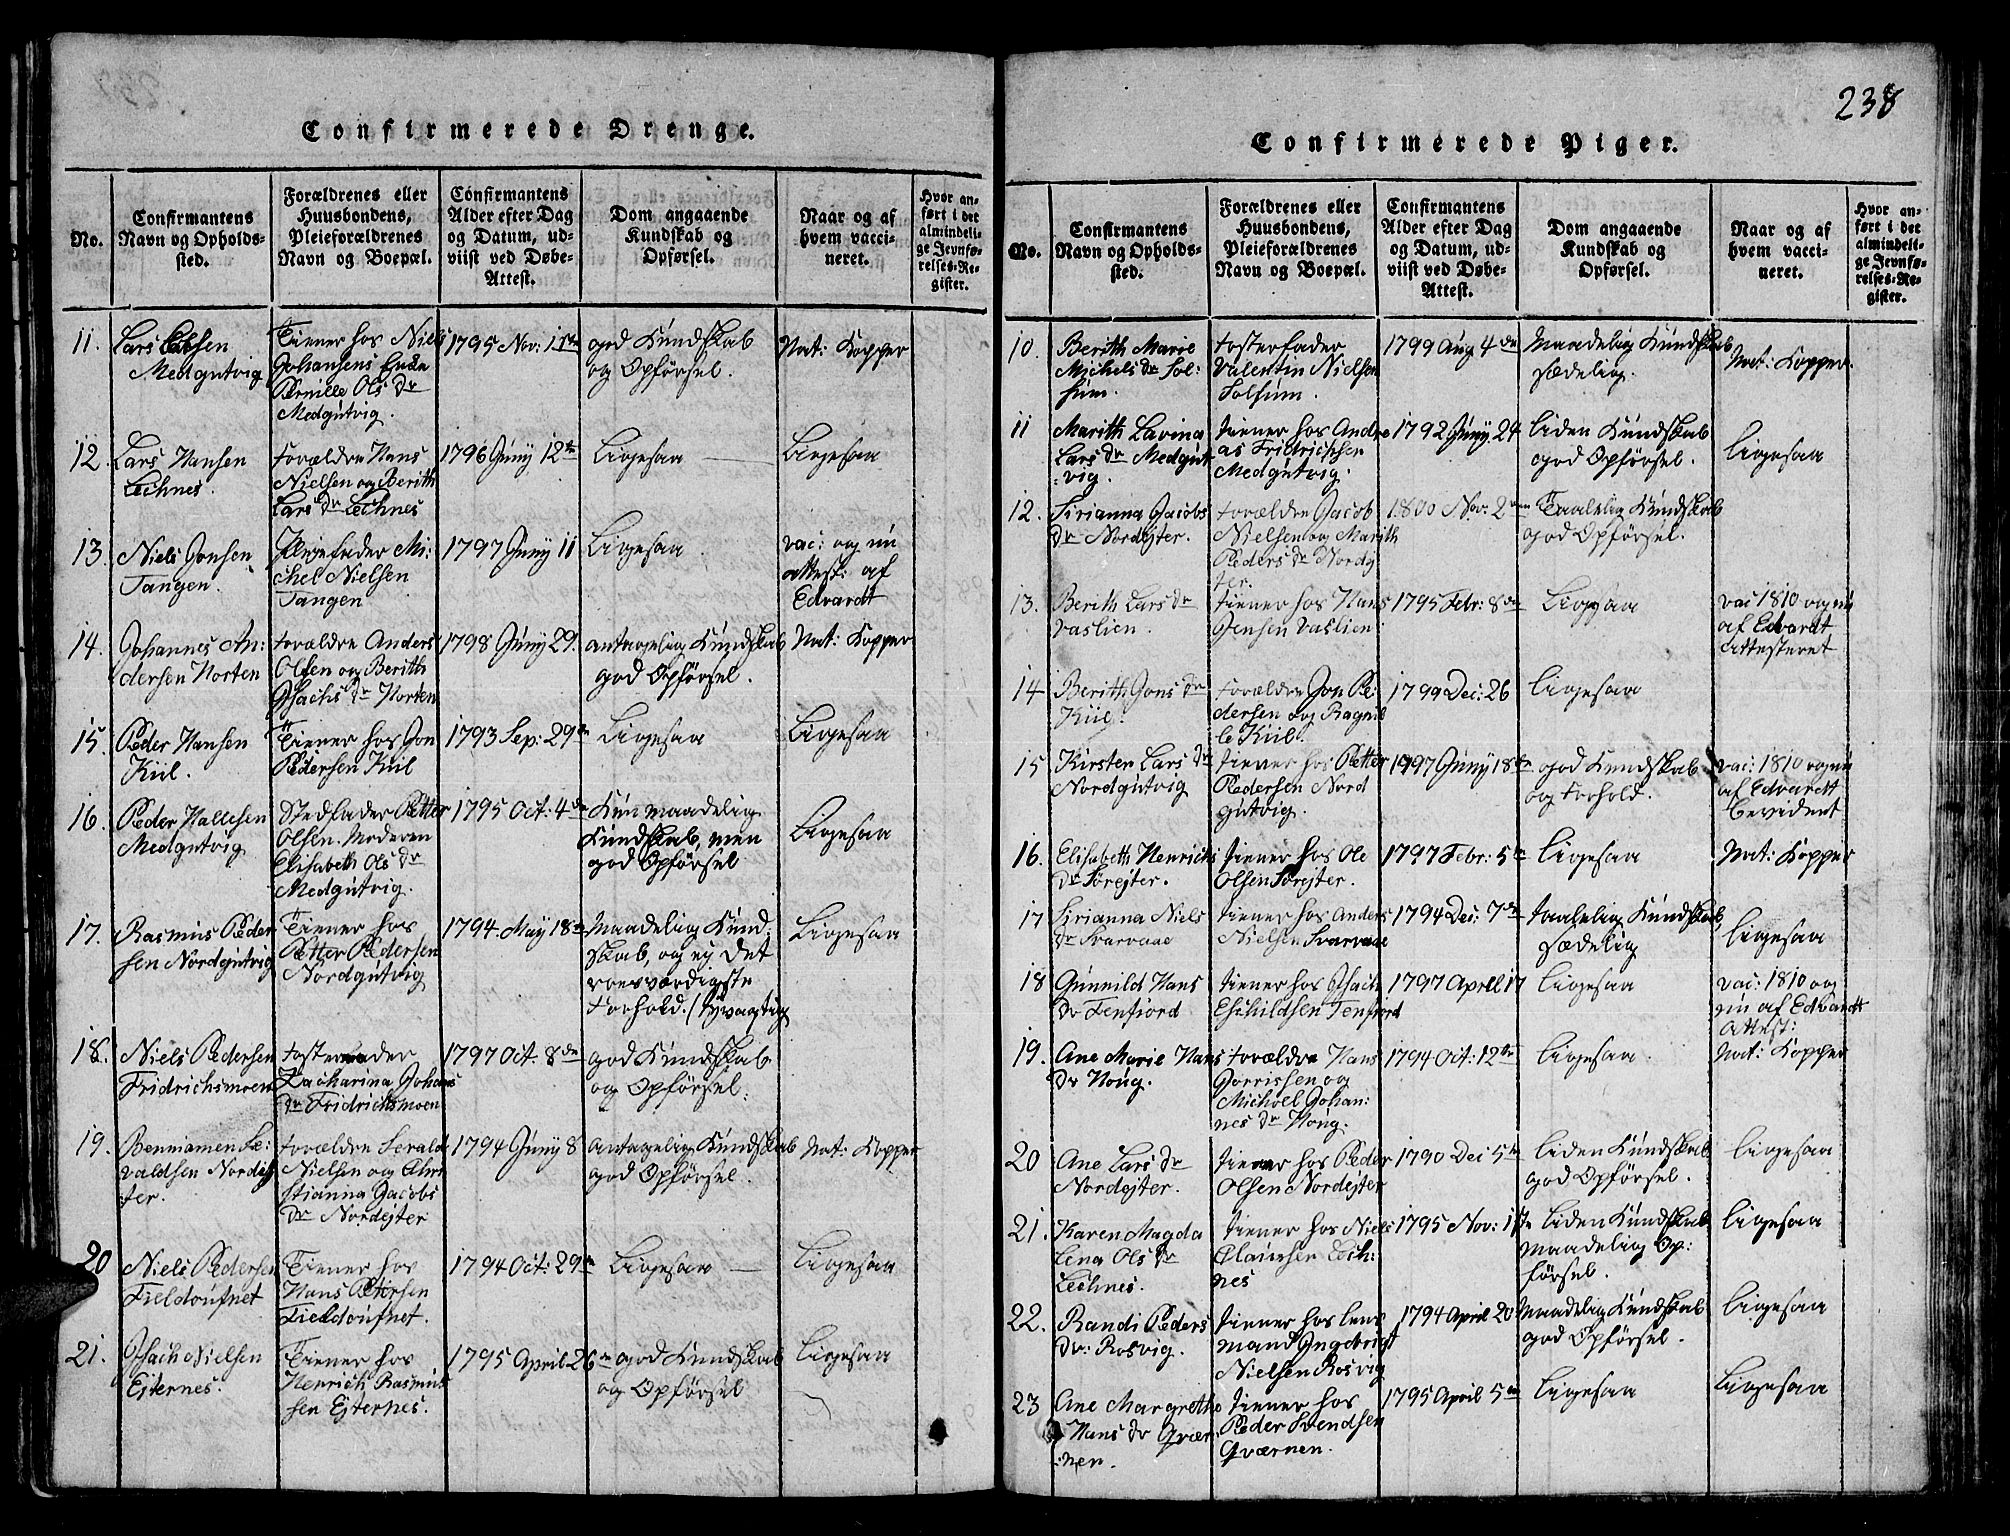 238
Confirmerede Drenge.
No.
Confirmantens
Navn og Opholds-
sted.
Forældrenes eller
Huusbondens,
Pleieforældrenes
Navn og Boepæl.
Confirmantens
Alder efter Dag
og Datum, ud-
viist ved Døbe-
Attest.
Dom angaaende
Kundskab og
Opførsel.
Naar og af
hvem vacci-
neret.
Hvor an-
ført i det
almindeli-
ge Jevnfø-
relses-Re-
gister.
11.
Lars
Medgutvig
Tiener hos Niels
Johansens Enke
Pernille Ols Dr
Medgutvig.
1795 Nov: 1ste
god Kundskab
og Opførsel.
Nat: Kopper
12.
Lars Hansen
Lechnes.
Forældre Hans
Nielsen og Berith
Lars Dr Lechnes
1796 Juny 12te
Ligesaa
Ligesaa
13.
Niels Jonsen
Tangen.
Pleiefader Mi:
chel Nielsen
Tangen
1797 Juny 11
Ligesaa
vac: og nu
attest: af
Edvardt
14.
Johannes An:
dersen Horten
Forældre Anders
Olsen og Berith
Isachs Dr Horten
1798 Juny 29.
antagelig Kundskab
god Opførsel.
Nat: Kopper
15.
Peder Hansen
Kiil.
Tiener hos Jon
Pedersen Kiil
1793 Sep: 29de
Ligesaa
Ligesaa
16.
Peder Hallesen
Medgutvig
Stedfader Petter
Olsen. Moderen
Elisabeth Ols Dr
Medgutvig.
1795 Oct: 4de
Kun maadelig
Kundskab, men
god Opførsel
Ligesaa
17.
Rasmus Peder
sen Nordgutvig
Tiener hos
Petter Pedersen
Nordgutvig
1794 May 18de
Maadelig Kund:
skab, og ej det
roesværdigste
Forhold.
Ligesaa
18.
Niels Pedersen
Fridrichsmoen
Zacharina Johans
Dr Fridrichsmoen
1797 Oct. 8de
god Kundskab
og Opførsel.
19.
Benniamen Se:
valdsen Nordej
ter.
Forældre Serald
Nielsen og Chri
stianna Jacobs
Dr Nordejter
1794 Juny 8
Antagelig Kundskab
god Opførsel.
Nat: Kopper
20
Niels Pedersen
Fieldoufnet
Tiener hos
Hans Petersen
Fieldoufnet.
1794 Oct: 29de
Ligesaa
Ligesaa
21.
Isach Nielsen
Ejternes.
Tiener hos
Henrich Rasmus
sen Ejternes.
1795 April 26de
god Kundskab
og Opførsel
Ligesaa
Confirmerede Piger.
No.
Confirmantens
Navn og Opholds-
sted.
Forældrenes eller
Huusbondens,
Pleieforældrenes
Navn og Boepæl.
Confirmantens
Alder efter Dag
og Datum, ud-
viist ved Døbe-
Attest.
Dom angaaende
Kundskab og
Opførsel.
Naar og af
hvem vacci-
neret.
Hvor an-
ført i det
almindeli-
ge Jevnfø-
relses-Re-
gister.
10.
Berith Marie
Michels Dr Sol:
sum.
Fosterfader
Valentin Nielsen
Solsum.
1799 Aug 4de
Maadelig Kundskab
sædelig.
Nat: Kopper.
11
Marith Lavina
Lars Dr Medgut
:vig.
tiener hos Andre
as Fridrichsen
Medgutvig.
1792 Juny 24
liden Kundskab
god Opførsel.
Ligesaa
12.
Sirianna Jacobs
Dr Nordejter.
Forældre Jacob
Nielsen og Marith
Peders Dr Nordej
ter.
1800 Nov: 2den
Taalelig Kundskab
god Opførsel.
13.
Berith Lars Dr
Vaslien.
tiener hos Hans
Jensen Vaslien
1795 Febr: 8de
Ligesaa
vac 1810 og nu
af Edvardt
Attesteret
14
Berith Jons Dr
Kiil.
Forældre Jon Pe:
dersen og Ragnil
le Kiil.
1799 Dec: 26
Ligesaa
15
Kirsten Lars Dr
Nordgutvig
tiener hos Petter
Pedersen Nord
gutvig.
1797 Juny 18de
god Kundskab
og Forhold.
vac: 1810 og nu
af Edvardt
bevidnet
16.
Elisabeth Henrichs
Dr Sørejter.
tiener hos Ole
Olsen Sørejter.
1797 Febr: 5te
Ligesaa
Nat: Kopper
17
Sirianna Niels
Dr Svarvaae
tiener hos Anders
Nielsen Svarvaae
1794 Dec: 7de
taalelig Kundskab,
sædelig
Ligesaa
18
Gunnild Hans
Dr Tenfiord
tiener hos Isach
Eschildsen Tenfiord
1797 April 17
Ligesaa
vac: 1810 og
nu af Edvardt
Attest:
19.
Ane Marie Hans
Dr Houg.
Forældre Hans
Jorrissen og
Michoel Johan:
nes Dr Houg.
1794 Oct: 12te
Ligesaa
Nat: Kopper
20
Ane Lars Dr
Nordejter.
tiener hos Peder
Olsen Nordejter
1790 Dec 5te
liden Kundskab
god Opførsel.
Ligesaa
21.
Karen Magda
lena Ols Dr
Lechnes.
tiener hos Niels
Claussen Lech:
nes
1795 Nov: 1ste
liden Kundskab
maadelig Op:
førsel.
Ligesaa
22.
Randi Peders
Dr: Rosvig.
tiener hos Lens
mand Ingebrigt
Nielsen Rosvig
1794 April 20
Maadelig Kundskab
god Opførsel.
Ligesaa
23
Ane Margrethe
Hans Dr Qvær:
:nen.
tiener hos
Peder Svendsen
Qværnen.
1795 April 5te
Ligesaa
Ligesaa